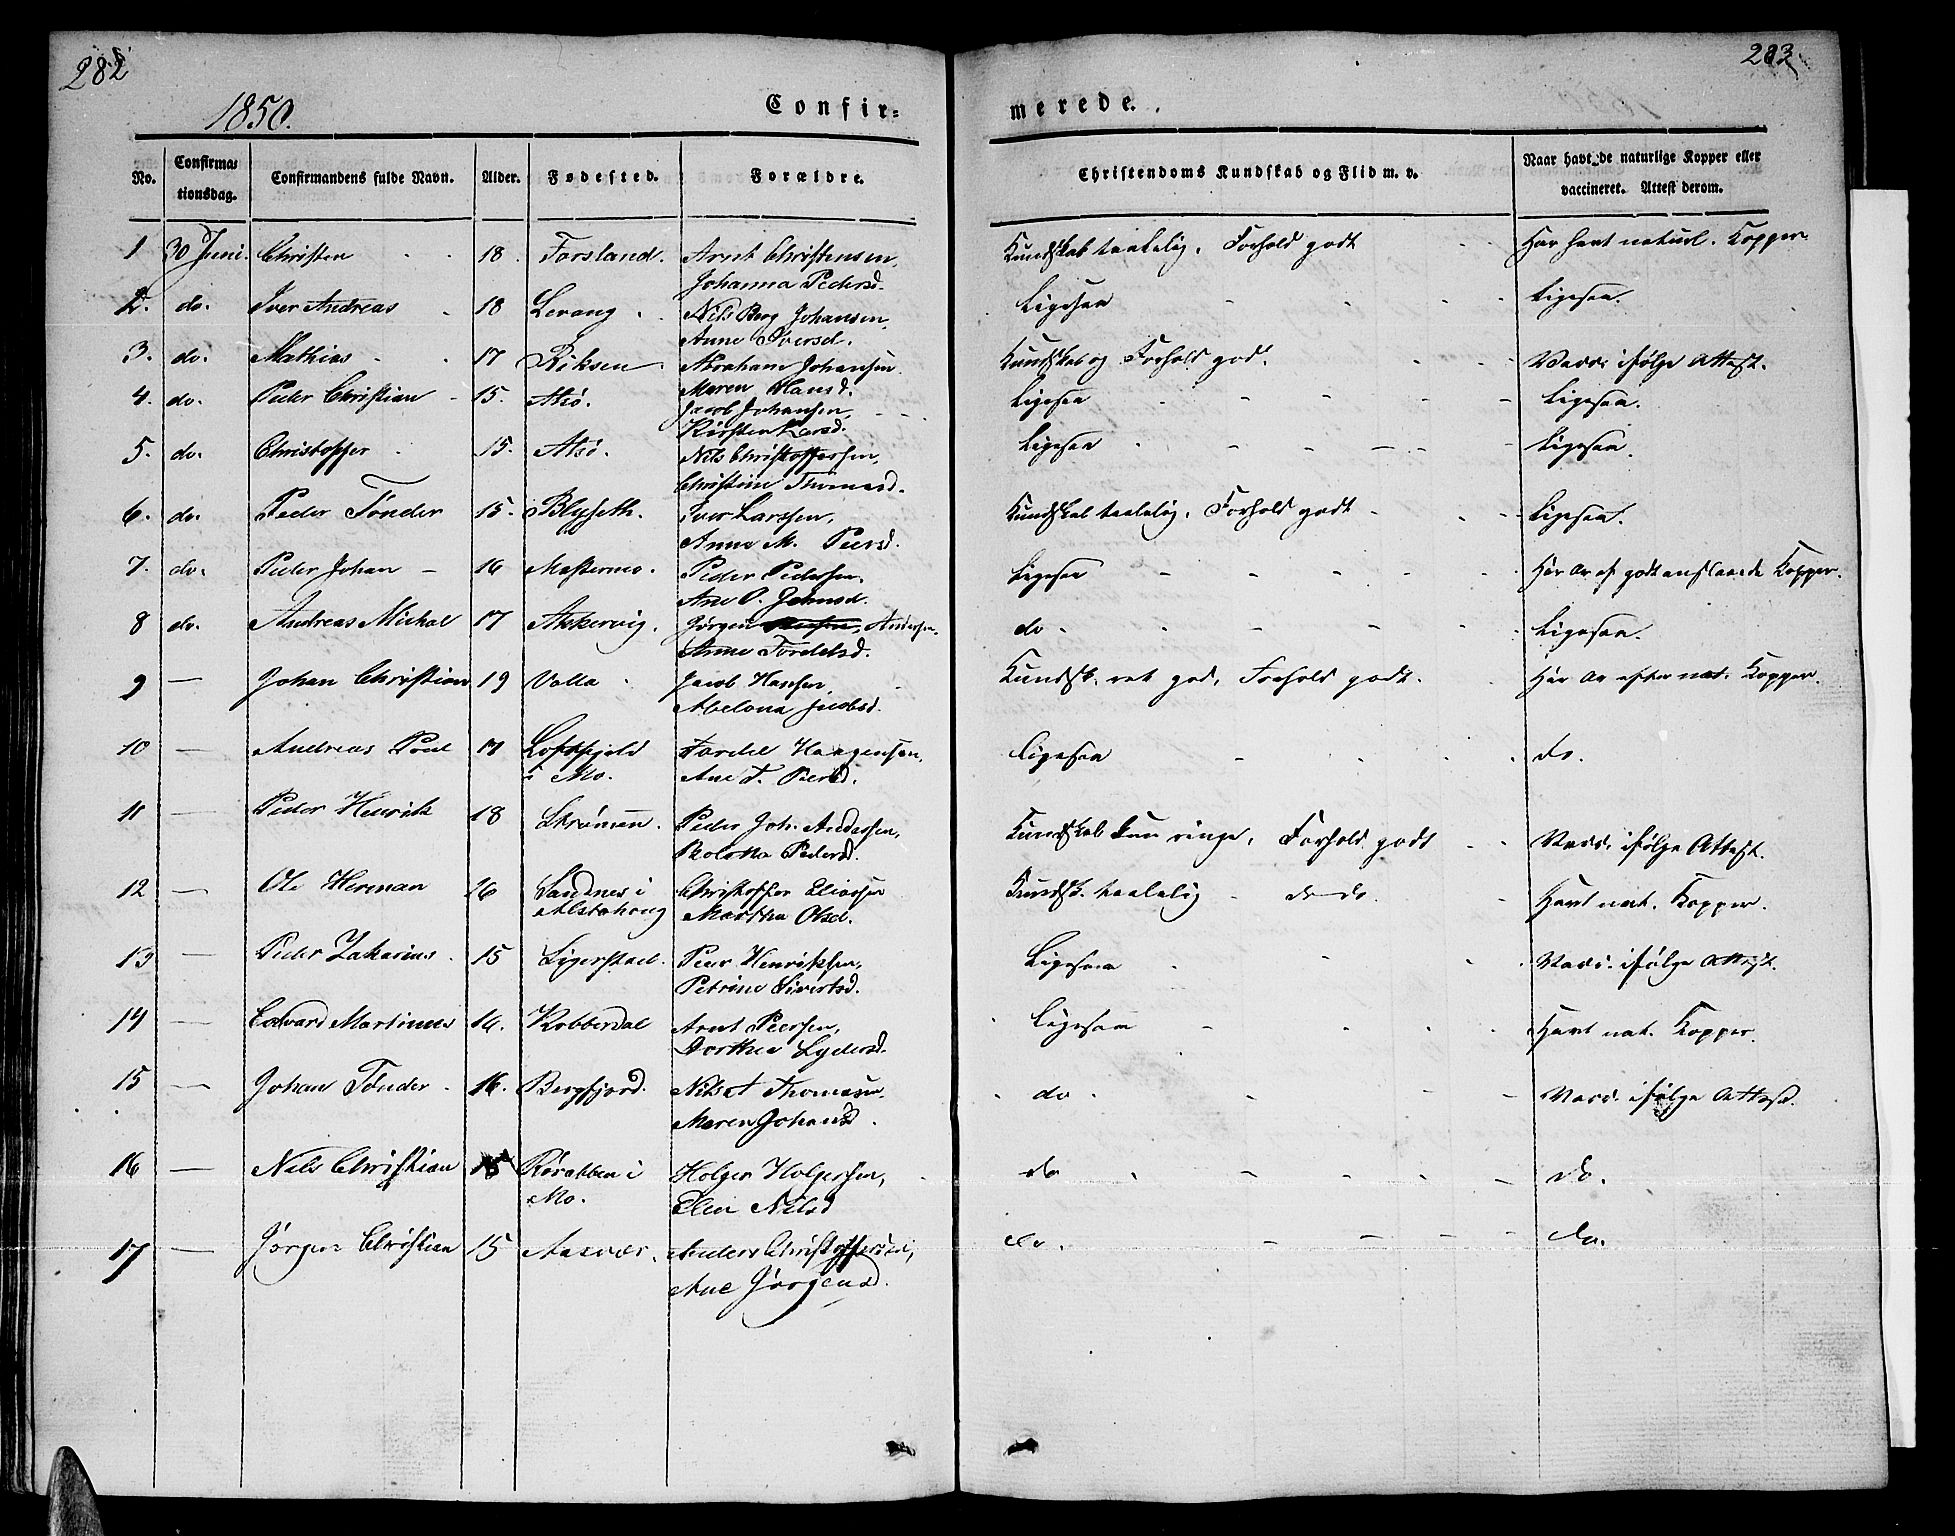 282
1850.
Confir=
No.
Confirma=
tionsdag.
Confirmandens fulde Navn.
Alder.
Fødested.
Forældre.
1 30 Juni. Christen 18. Forsland. Arnt Christensen,
Johanna Pedersd.
2. do. Iver Andreas 18 Levang. Nils Berg Johansen,
Anne Iversd.
3. do. Mathias 17 Riksen Abraham Johansen.
Maren Hansd.
4. do. Peder Christian 15. Alsø. Jacob Johansen,
Kirsten Larsd.
5. do. Christoffer 15. Alsø. Nils Christoffersen,
Christine Thomasd.
6. do. Peder Tønder 15. Blyseth. Iver Larssen,
Anne M. Peersd.
7. do. Peder Johan 16 Mastermo. Peder Pedersen.
Ane P. Johnsd.
8 do. Andreas Michal 17 Akkervig. Jørgen Andersen.
Anne Tordelsd.
9 — Johan Christian 19 Valla Jacob Hansen,
Abelona Jacobsd.
10 — Andreas Poul 17 Loftfjeld Tordel Haagensen,
i Mo. Ane T. Peersd.
11 — Peder Henrik 18 Skrømen. Peder Joh. Andersen,
Peder​sd.
12 — Ole Herman 16 Sandnes i Christoffer Eliassen
Alstahoug Martha Olsd.
13 — Peder Zakarias 15 Ligerstad. Peer Henriksen,
Petrine Sivertsd.
14 — Edvard Martinus 16. Kobberdal Arnt Peersen,
Dorthea Lydersd.
15 — Johan Tønder 16. Bergfjord. Nils Thomasen,
Maren Johansd.
16 — Nils Christian Røvabben i Holger Holgersen,
Mo. Elen Nilsd
17 — Jørgen Christian 15 Aasvær. Anders Christoffersen,
Ane Jørgensd.
283
merede.
Christendoms Kundskab og Flid m. v.
Naar havt de naturlige Kopper eller
vaccineret. Attest derom.
Kundskab taalelig, Forhold godt Har havt naturl. Kopper
Ligesaa Ligesaa.
Kundskab og Forhold god. Vacc. ifølge Attest.
Ligesaa Ligesaa.
Ligesaa Ligesaa.
Kundskab taalelig, Forhold godt Ligesaa.
Ligesaa Har Ar af godt anslaaede Kopper.
do Ligesaa.
Kundsk. ret god, Forhold godt. Har Ar efter nat. Kopper.
Ligesaa do.
Kundskab kun ringe, Forhold godt Vacc. ifølge Attest.
Kundsk. taalelig do do. Havt nat. Kopper.
Ligesaa Vacc. ifølge Attest.
Ligesaa Havt nat. Kopper.
do Vacc. ifølge Attest.
do do.
do. do.